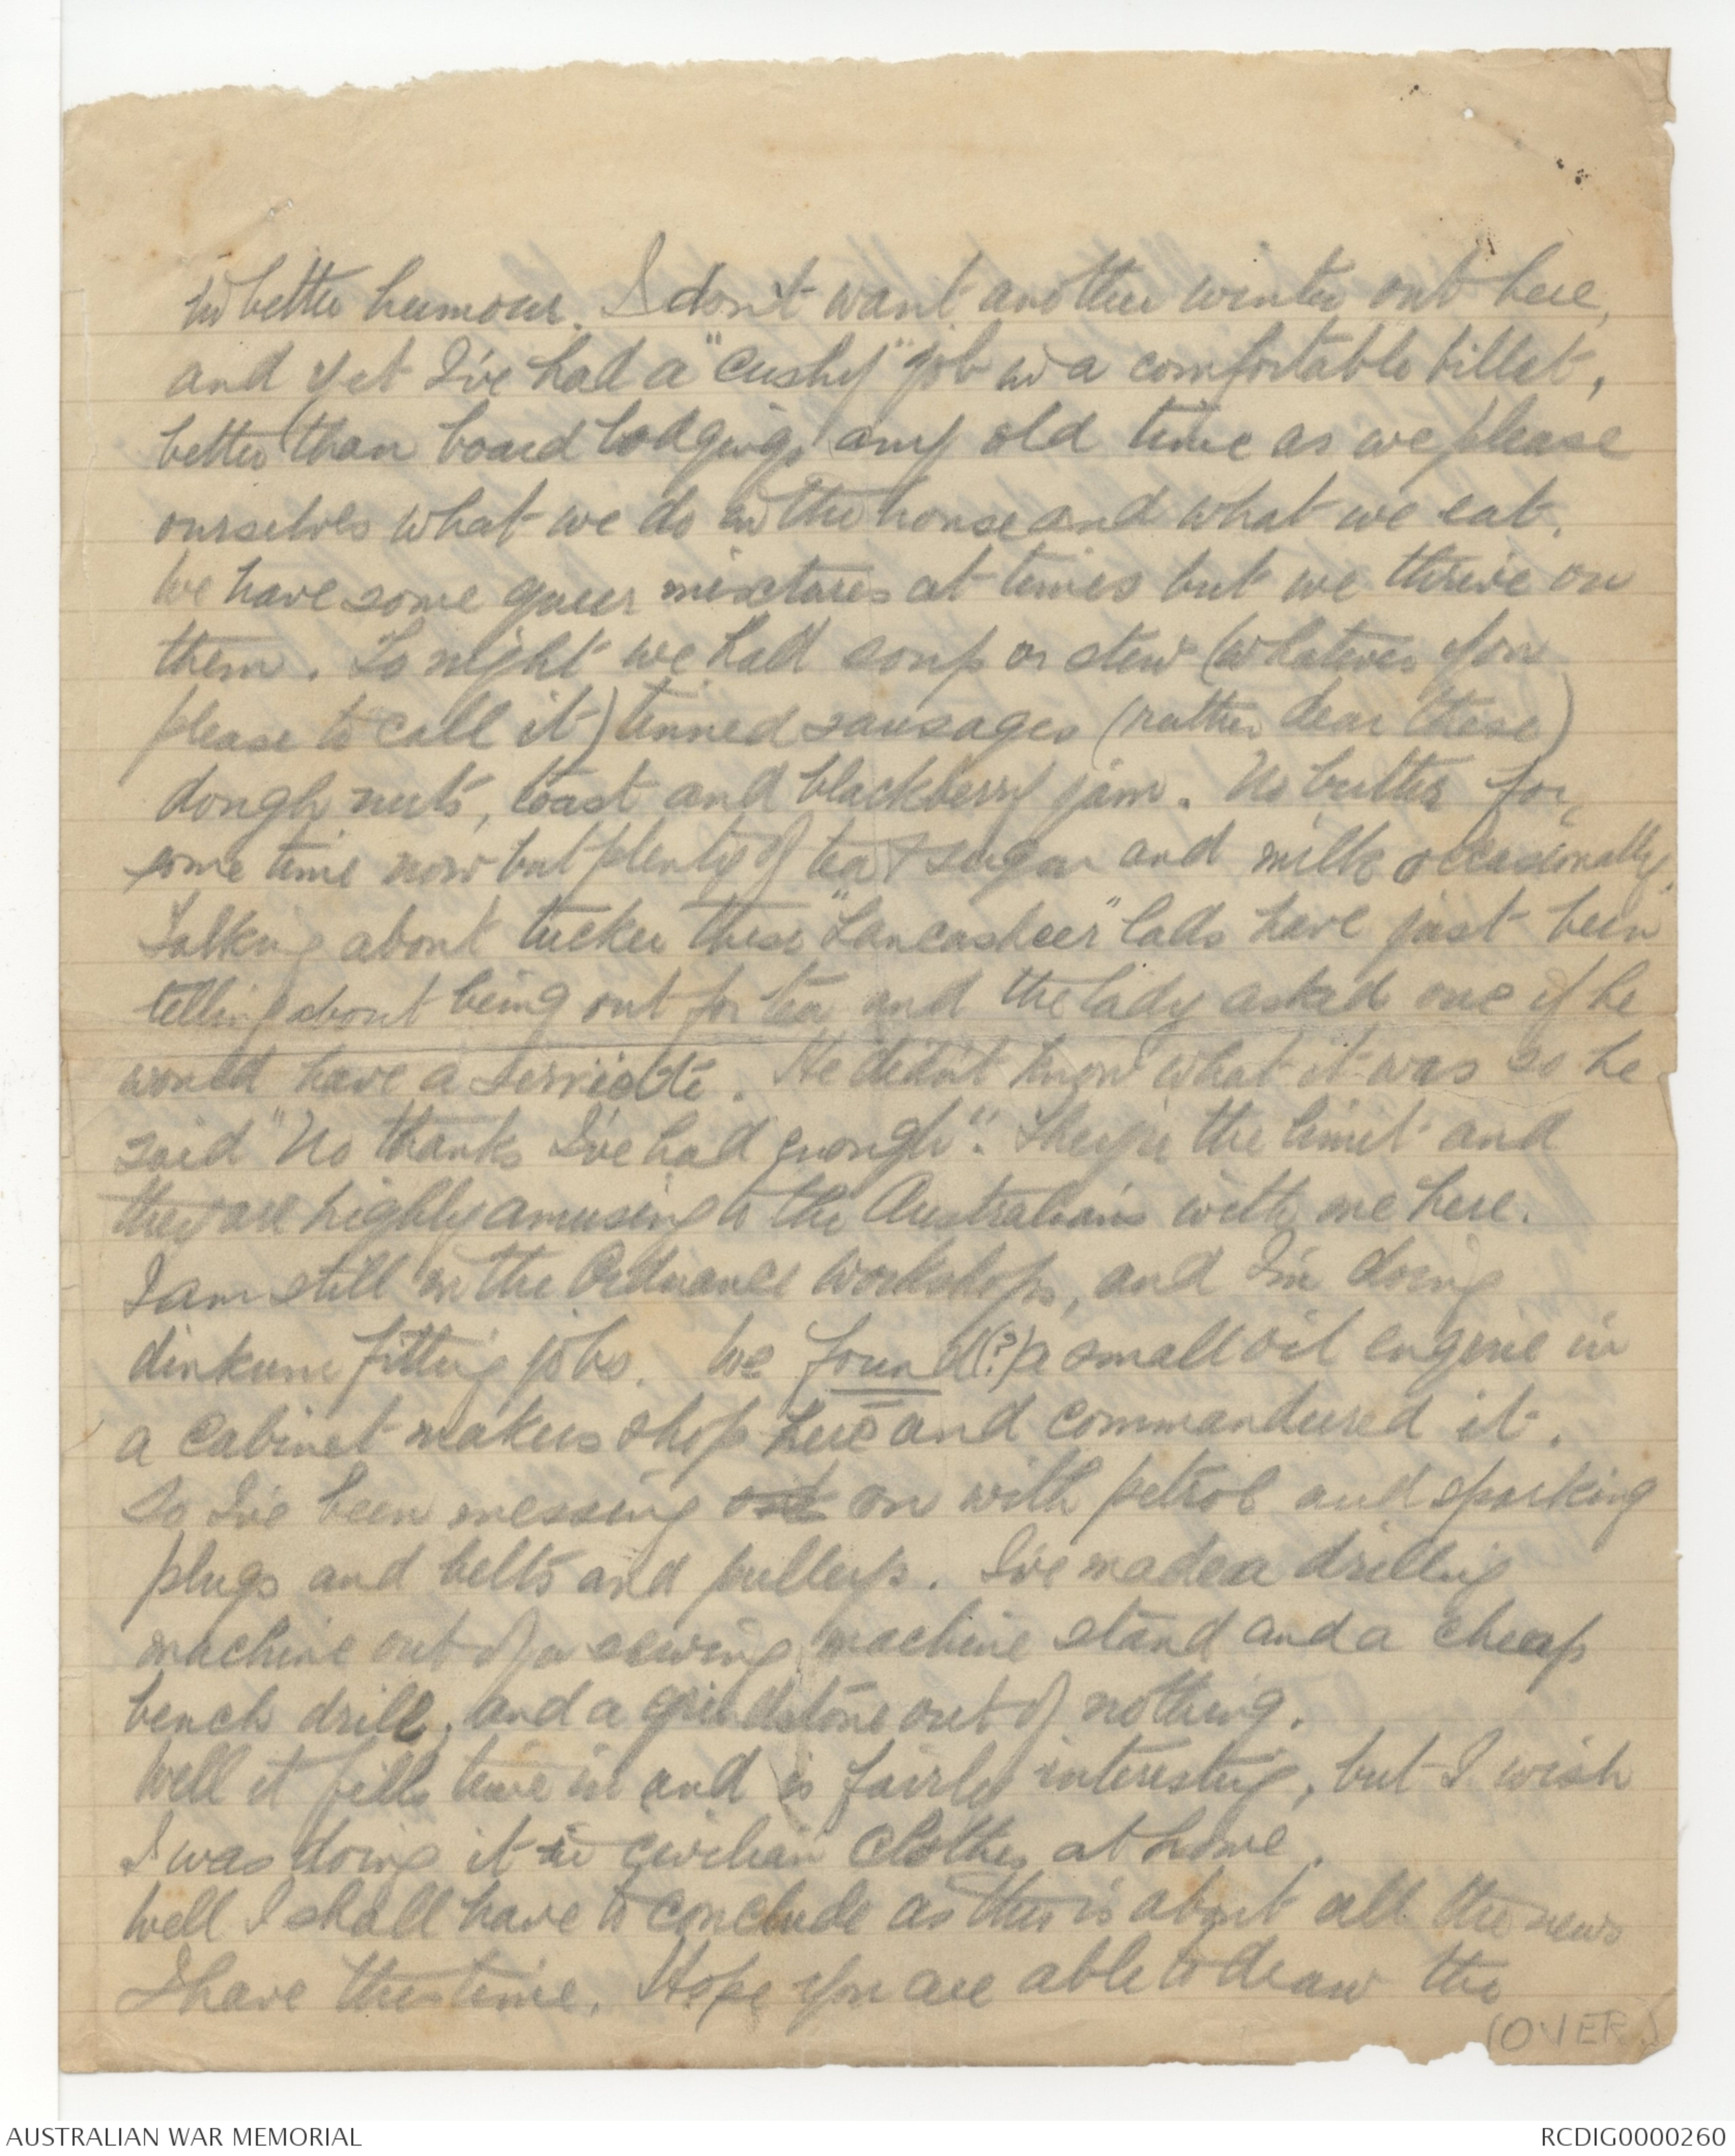 in better humour. I don't want another winter out here,
and yet I've had a "cushy" job in a comfortable billet,
better than board lodgings any old time as we please
ourselves what we do in the house and what we eat.
We have some queer mixtures at times but we thrive on
them. To night we had soup or stew (whatever you
please to call it) tinned sausages (rather dear these)
dough nuts, toast and blackberry jam. No butter for
some time now but plenty of tea & sugar and milk occasionally.
Talking about tucker these "Lancasheer" lads have just been
telling about being out for tea and the lady asked one if he
would have a serviette. He didn't know what it was so he
said "No thanks I've had enough". They're the limit and
they are highly amusing to the Australians with me here.
I am still in the Ordnance workshops, and I'm doing
dinkum fitting jobs. We found (?) a small oil engine in
a cabinet makers shop here and commandeered it.
So I've been messing on with petrol and sparking
plugs and belts and pulleys. I've made a drilling
machine out of a sewing machine stand and a cheap
bench drill, and a grindstone out of nothing.
Well it fills time in and is fairly interesting, but I wish
I was doing it in civilian clothes at home.
Well I shall have to conclude as this is about all the news
I have this time. Hope you are able to draw the
(OVER)
AUSTRALIAN WAR MEMORIAL
RCDIG0000260